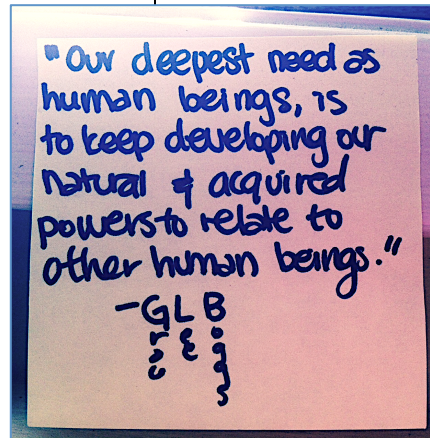 "Our deepest need as
human beings, is
to keep developing our
natural & acquired
powers to relate to
other human beings."
- Grace Lee Boggs